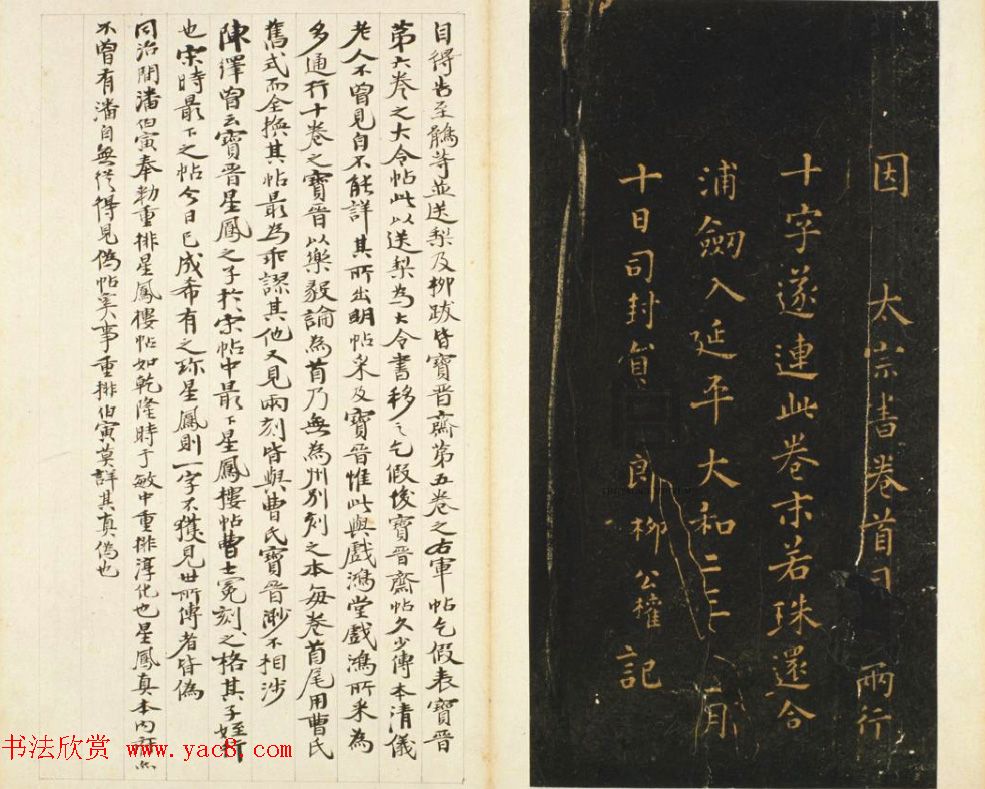 因 太宗書卷首 兩行
十字遂連此卷末若珠還合
浦劔入延平大和二三月
十日司封員 郎柳公權記
目得告至觿等並送梨及柳跋皆寶晉齋第五卷之右軍帖乞假表寶晉
第六卷之大令帖此以送梨為大令書移之乞假後寶晉齋帖久少傳本清儀
老人不曾見自不能詳其所出明帖采及寶晉惟此與戲鴻堂戲鴻所采為
多通行十卷之寶晉以樂毅論為首乃無為州別刻之本每卷首尾用曹氏
舊式而全換其帖最為乖謬其他又見兩刻皆與曹氏寶晉渺不相涉
陳繹曾云寶晉星鳳之子於宋帖中最下星鳳樓帖曹士冕刻之格其子姪行
也宋時最下之帖今日已成希有之珎星鳳則一字不獲見世所傳者皆偽
同治間潘伯寅奉勅重排星鳳樓帖如乾隆時于敏中重排淳化也星鳳真本內
不曾有潘自無從得見偽帖矣事重排伯寅莫詳其真偽也
书法欣赏 www.yac8.com